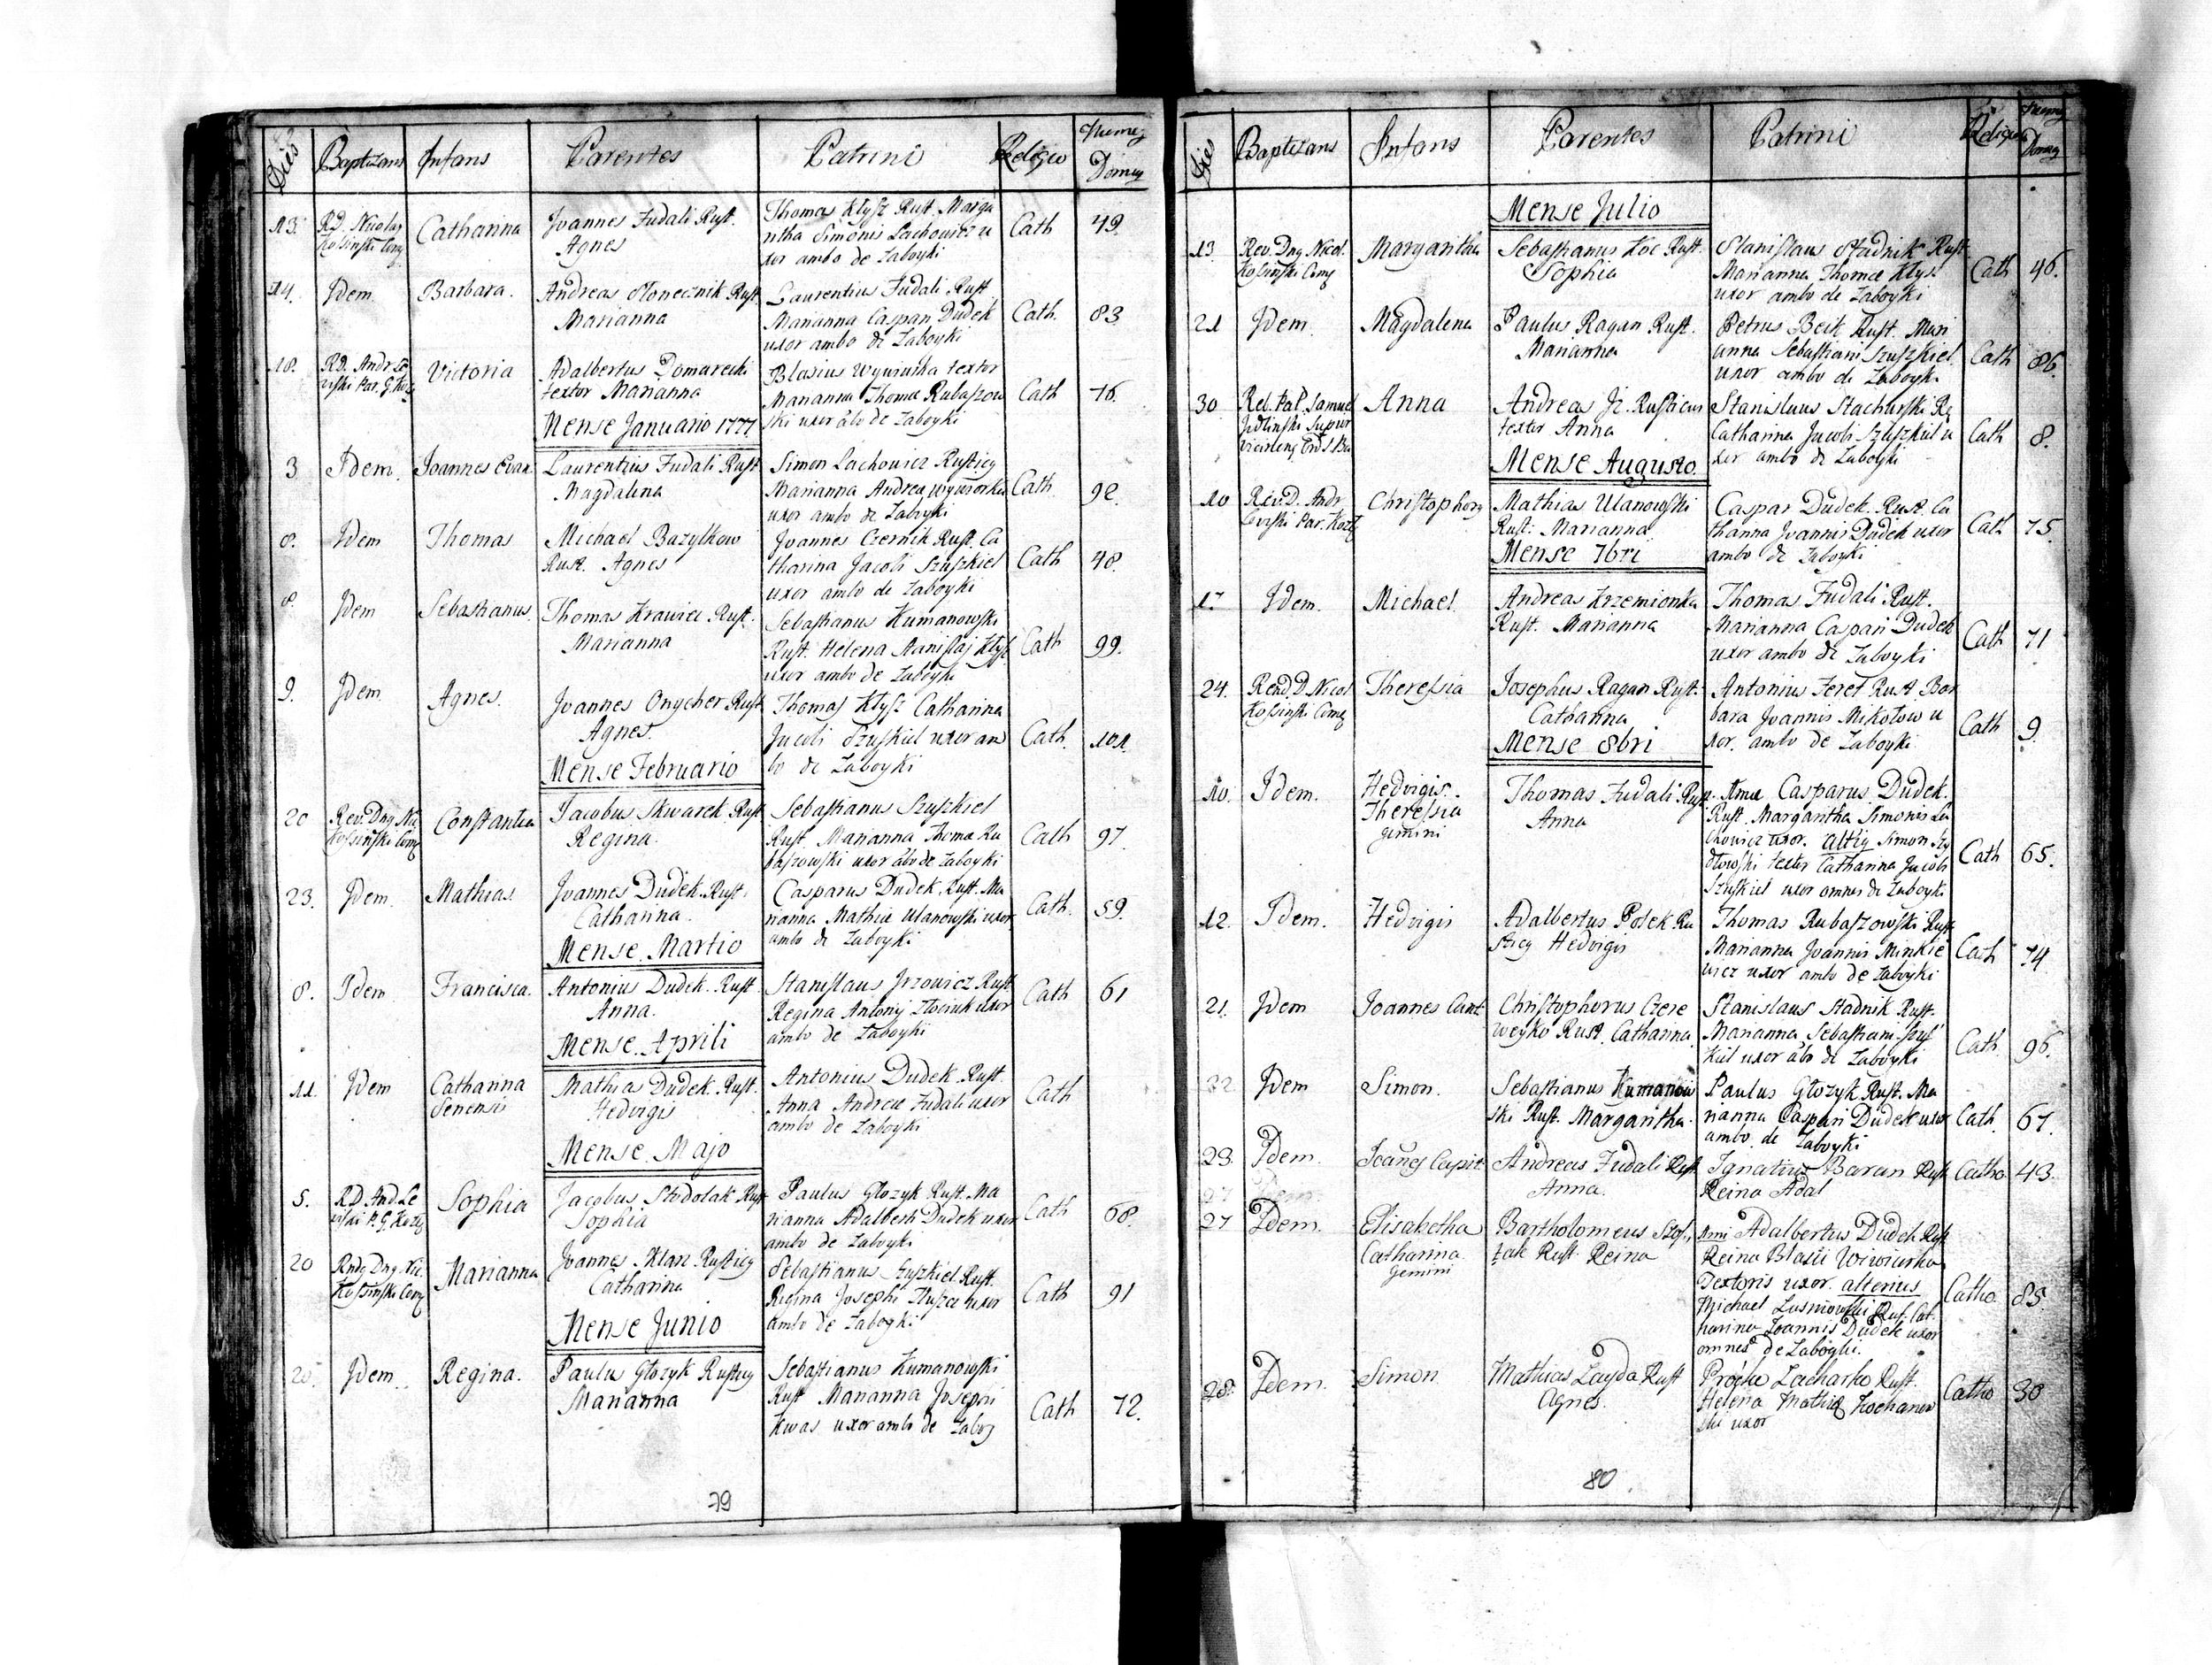 Dies Baptizans Infans Parentes Patrini Religio Domus
13. RD. Nicolaus Catharina Joannes Fudali Rust. Thoma Kłysz Rust. Marga Cath 49.
Kosinski Com Agnes ritha Simonis Lachowicz u
xor ambo de Zaboyki
14. Idem Barbara. Andreas Słonecznik Rust. Laurentius Fudali Rust. Cath. 83
Marianna Marianna Caspari Dudek
uxor ambo de Zaboyki
18. RD. Andr Le Victoria Adalbertus Domarecki Blasius Wywiurka textor Cath 76.
textor Marianna Marianna Thomæ Rubaszow
Mense Januario 1777. ski uxor abo de Zaboyki
3 Idem. Joannes Evan Laurentius Fudali Rust Simon Lachowicz Rusticus Cath. 92.
Magdalena Marianna Andreæ Wywiorka
uxor ambo de Zaboyki
8. Idem Thomas Michael Bazylkow Joannes Czernik Rust. Ca Cath 48.
Rust. Agnes tharina Jacobi Szuszkiel
uxor ambo de Zaboyki
8. Idem Sebastianus. Thomas Krawiec Rust. Sebastianus Kumanowski Cath 99.
Marianna Rust. Helena Stanislaj Kłysz
uxor ambo de Zaboyki
9. Idem Agnes. Joannes Onycher Rust. Thomas Kłysz Catharina Cath. 101.
Agnes. Jacobi Szuszkiel uxor am
Mense Februario bo de Zaboyki
20 Rev. Dnus Ni Constantia Jacobus Skwarek Rust Sebastianus Szuszkiel Cath 97.
Kossinski Com Regina. Rust. Marianna Thomæ Ru
baszowski uxor abo de Zaboyki
23. Idem. Mathias. Joannes Dudek Rust. Casparus Dudek Rust. Ma Cath. 59.
Catharina. rianna Mathiæ Ulanowski uxor
Mense Martio ambo de Zaboyki
8. Idem Francisca. Antonius Dudek Rust. Stanislaus Jrzowicz Rust Cath 61
Anna. Regina Antonij uxor
Mense Aprili ambo de Zaboyki
11. Idem Catharina Mathias Dudek Rust. Antonius Dudek Rust. Cath
Senensis Hedvigis Anna Andreæ Fudali uxor
ambo de Zaboyki
Mense Majo
5. RD. And. Le Sophia Jacobus Stodolak Rust Paulus Głozyk Rust. Ma Cath 68.
Sophia rianna Adalberti Dudek uxor
ambo de Zaboyki
20 Rndus Dnus Ni. Marianna Joannes Klarz Rusticus Sebastianus Szuszkiel Rust. Cath 91
Kossinski Com Catharina Regina Josephi uxor
Mense Junio ambo de Zaboyki
20. Idem Regina. Paulus Głozyk Rusticus Sebastianus Kumanowski Cath 72.
Marianna Rust Marianna Josephi
Kwas uxor ambo de Zaboy
79
Dies Baptizans Infans Parentes Patrini Religio Domus
Mense Julio
13 Rev. Dnus Nicol. Margaritha Sebastianus Koc Rust. Stanislaus Stadnik Rust Cath 46.
Kosinski Com Sophia Marianna Thomæ Kłys
uxor ambo de Zaboyki
21 Idem. Magdalena Paulus Ragan Rust. Petrus Beik Rust. Mari Cath 86.
Marianna anna Sebastiani Szuszkiel
uxor ambo de Zaboyki
30 Rel. Pat. Samuel Anna Andreas Jz. Rusticus Stanislaus Stachurski Cath 8.
textor Anna Catharina Jacobi Szuszkiel u
Mense Augusto xor ambo de Zaboyki
10 Rev. D. Andr Christophorus Mathias Ulanowski Caspar Dudek Rust. Ca Cath 75.
Rust. Marianna tharina Joannis Dudek uxor
Mense 7bri ambo de Zaboyki
17 Idem. Michael. Andreas Krzemionka Thomas Fudali Rust. Cath 71
Rust. Marianna Marianna Caspari Dudek
uxor ambo de Zaboyki
24. Rend. D. Nicol Theressia Josephus Ragan Rust. Antonius Feret Rust Bar Cath 9.
Kossinski Com Catharina bara Joannis Mikołow u
Mense 8bri xor. ambo de Zaboyki
10. Idem. Hedvigis. Thomas Fudali Rust. Casparus Dudek. Cath 65.
Theressia Anna Rust. Margaritha Simonis La
gemini chowicz uxor. Simon
textor Catharina Jacobi
Szuskiel uxor omnes de Zaboyki
12. Idem. Hedvigis Adalbertus Potek Ru Thomas Rubaszowski Rust Cath 74
sticus Hedvigis Marianna Joannis Minkie
wicz uxor ambo de Zaboyki
21. Idem Joannes Cant Christophorus Czere Stanislaus Stadnik Rust. Cath. 96.
weyko Rust. Catharina. Marianna Sebastiani Szus
kiel uxor abo de Zaboyki
22 Idem Simon. Sebastianus Kumanow Paulus Głozyk Rust. Ma Cath. 67.
ski Rust. Margaritha. rianna Caspari Dudek uxor
ambo de Zaboyki
23. Idem. Joanes Capit Andreas Fudali Rust Ignatius Baran Rust Catho 43.
Anna. Reina Adal
27 Idem. Elisabetha Bartholomeus 1mi Adalbertus Dudek Rust Catho. 85.
Catharina Rust. Reina Reina Blasii Wiwiurka
gemini Textoris uxor. alterius
Michael Rust. Cat
harina Joannis Dudek uxor
omnes de Zaboyki.
28. Idem. Simon. Mathias Layda Rust Rust. Catho 30
Agnes. Helena Mathiæ Kochanow
ski uxor
80